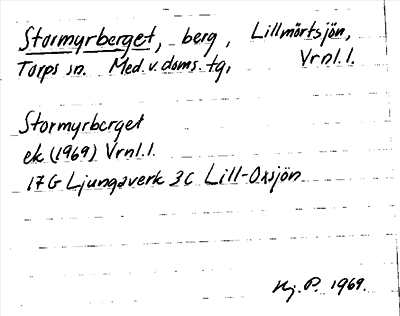 Stormyrberget, berg, Lillmörtsjön,
Torps sn. Med. v. doms. tg, Vrnl. l.
Stormyrberget
ek (1969) Vrnl. l.
17G Ljungaverk 3C Lill-Oxsjön
Hj. P. 1969.